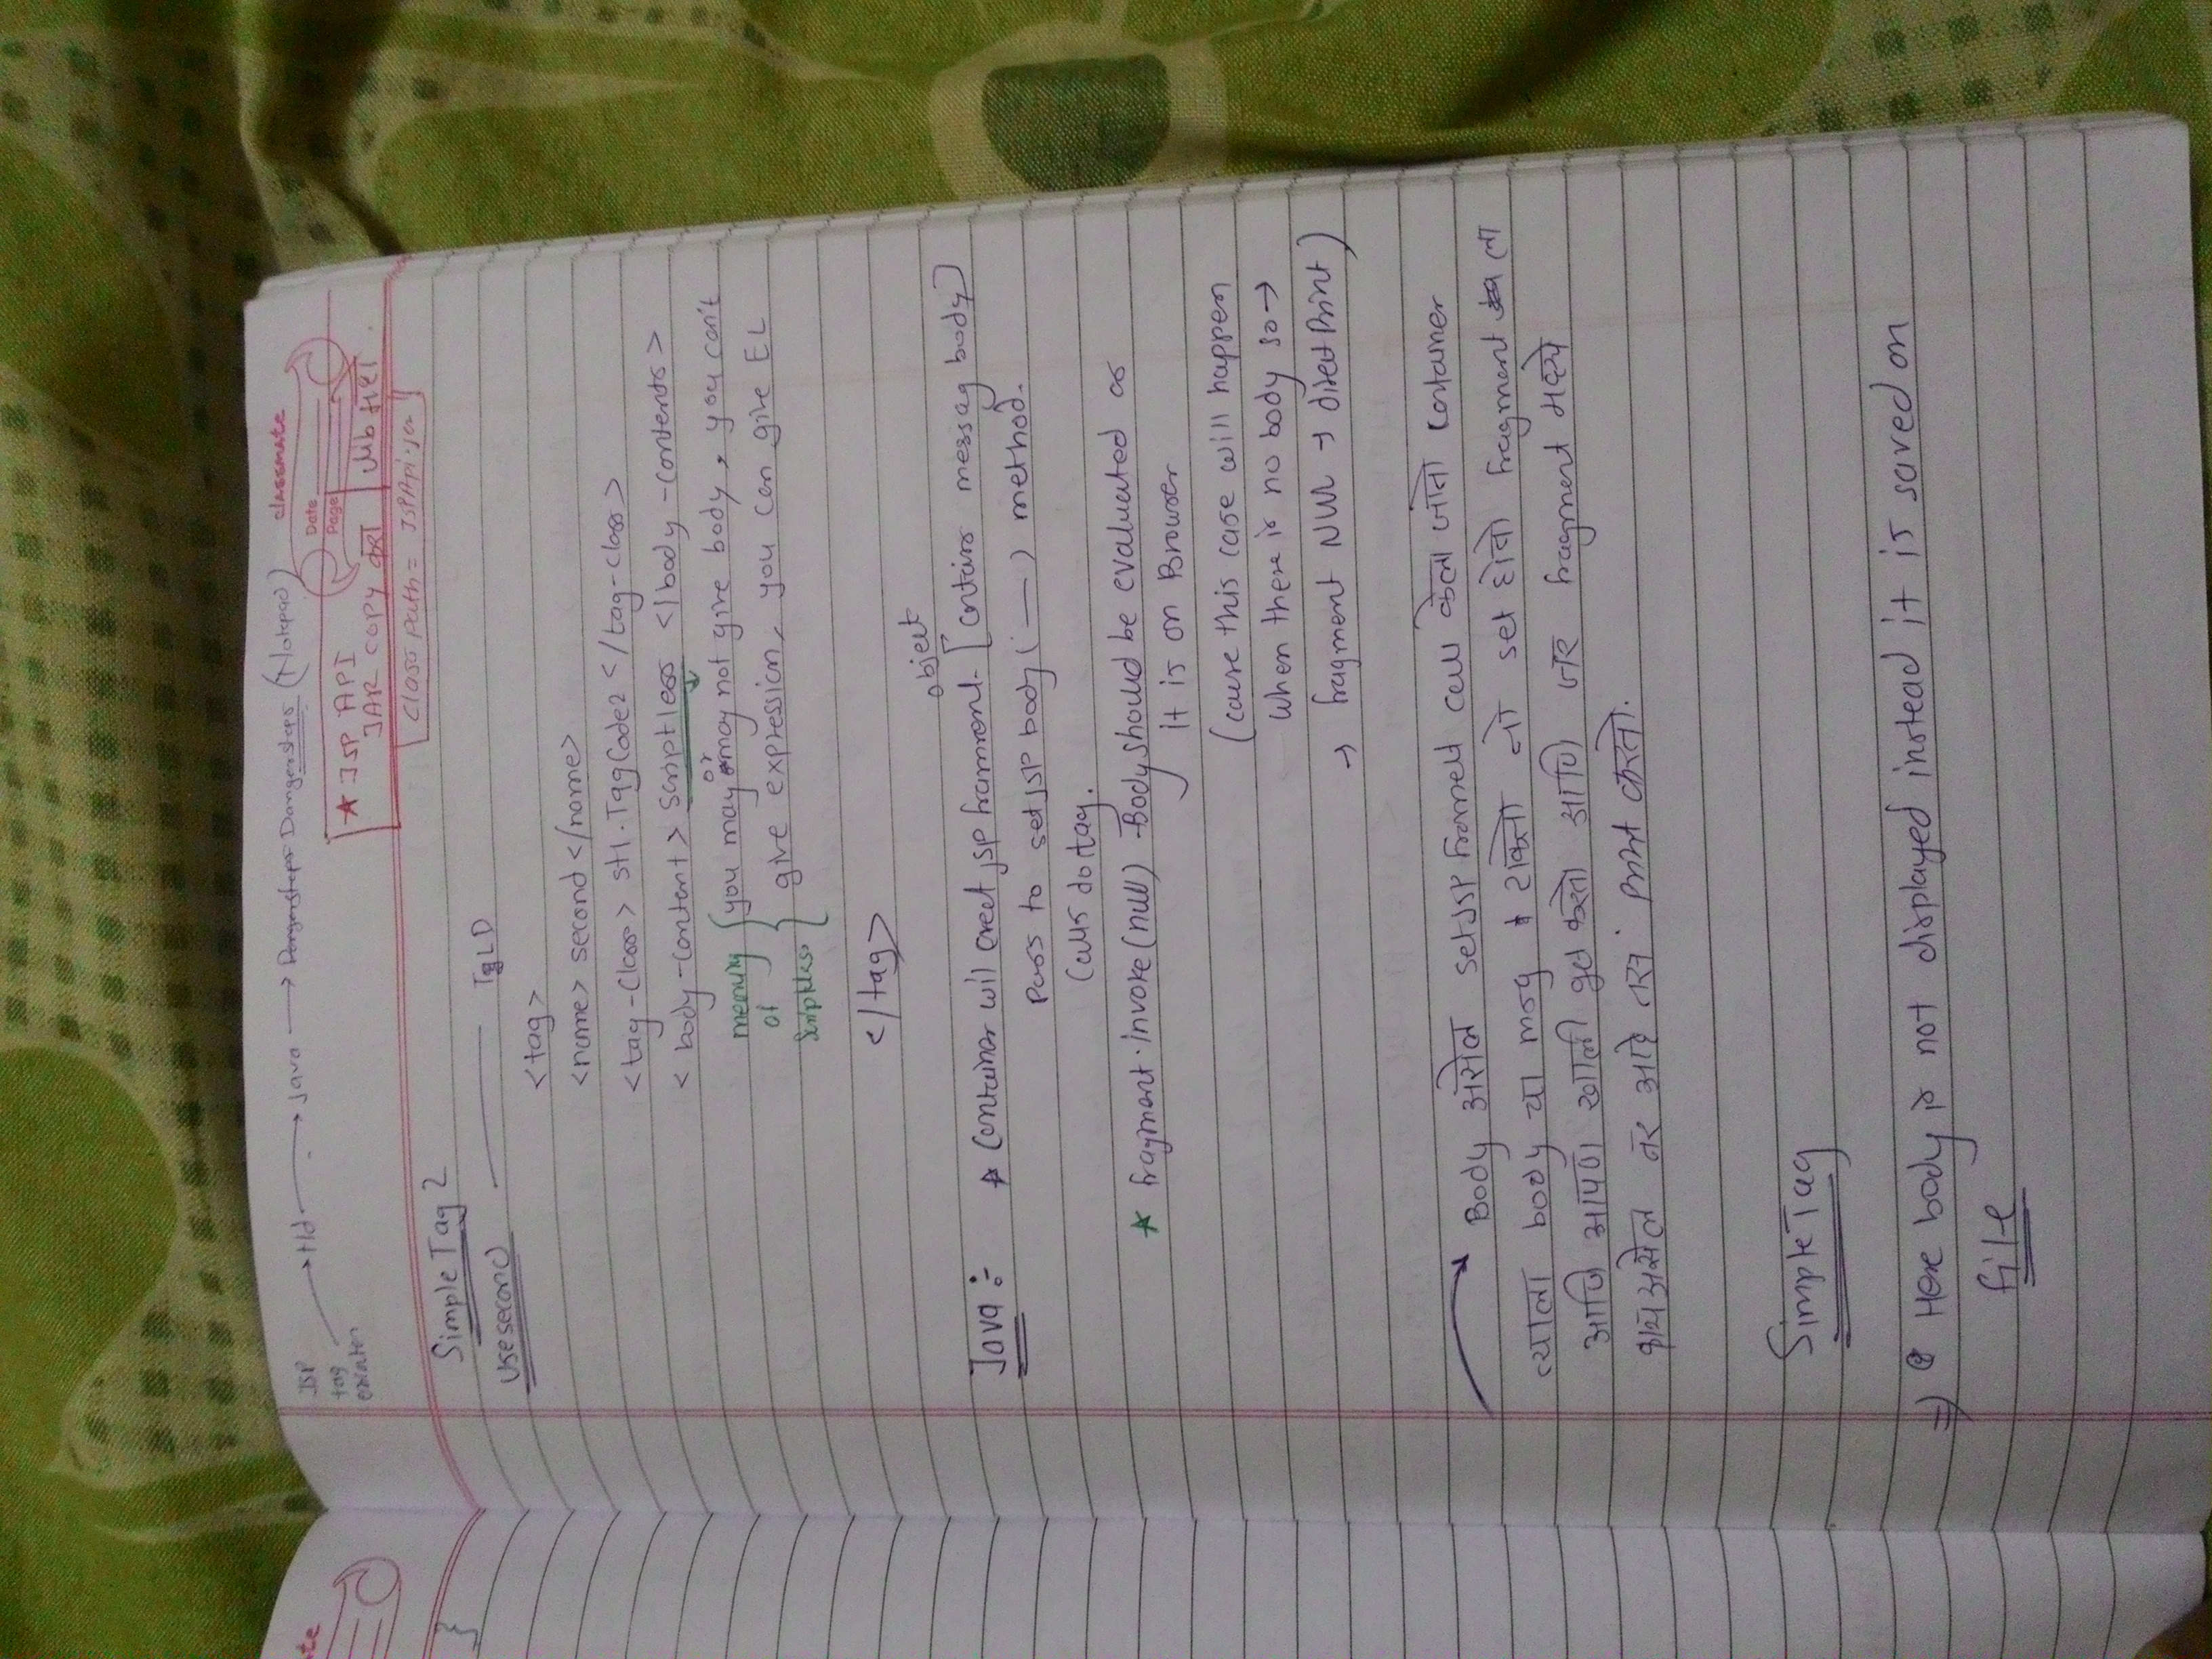 classmate
Date
Page
JSP
tag
→ tld → Java → Dangersteps Dangersteps (Notepad)
★ JSP API
JAR COPY करा | lib मध्ये.
Class path = JSPApi.jar
Simple Tag 2
Use second — TLD
<tag>
<name> second </name>
<tag-Class> st1.TagCode2 </tag-class>
< body-content > Scriptless </body-contents >
meaning of Scriptless { you may or may not give body, you can't
give expression, you can give EL
</tag>
object
Java :- ★ Container wil creet jsp framment [contains messag body]
Pass to setJSP body ( — ) method.
Calls dotag.
★ fragment.invoke(null) - Body should be evaluated as
it is on Browser
(cause this case will happen
When there is no body so →
→ fragment NULL → direct Print )
Body असेल setJSP framelt call केला जातो container
त्याला body चा msg टाकतो तो set होतो fragment ला
आणि आपण खाली get करतो आणि जर fragment मध्ये
काय असेल तर आहे तसं print करतो.
Simple Tag
⇒ Here body is not displayed instead it is saved on
file